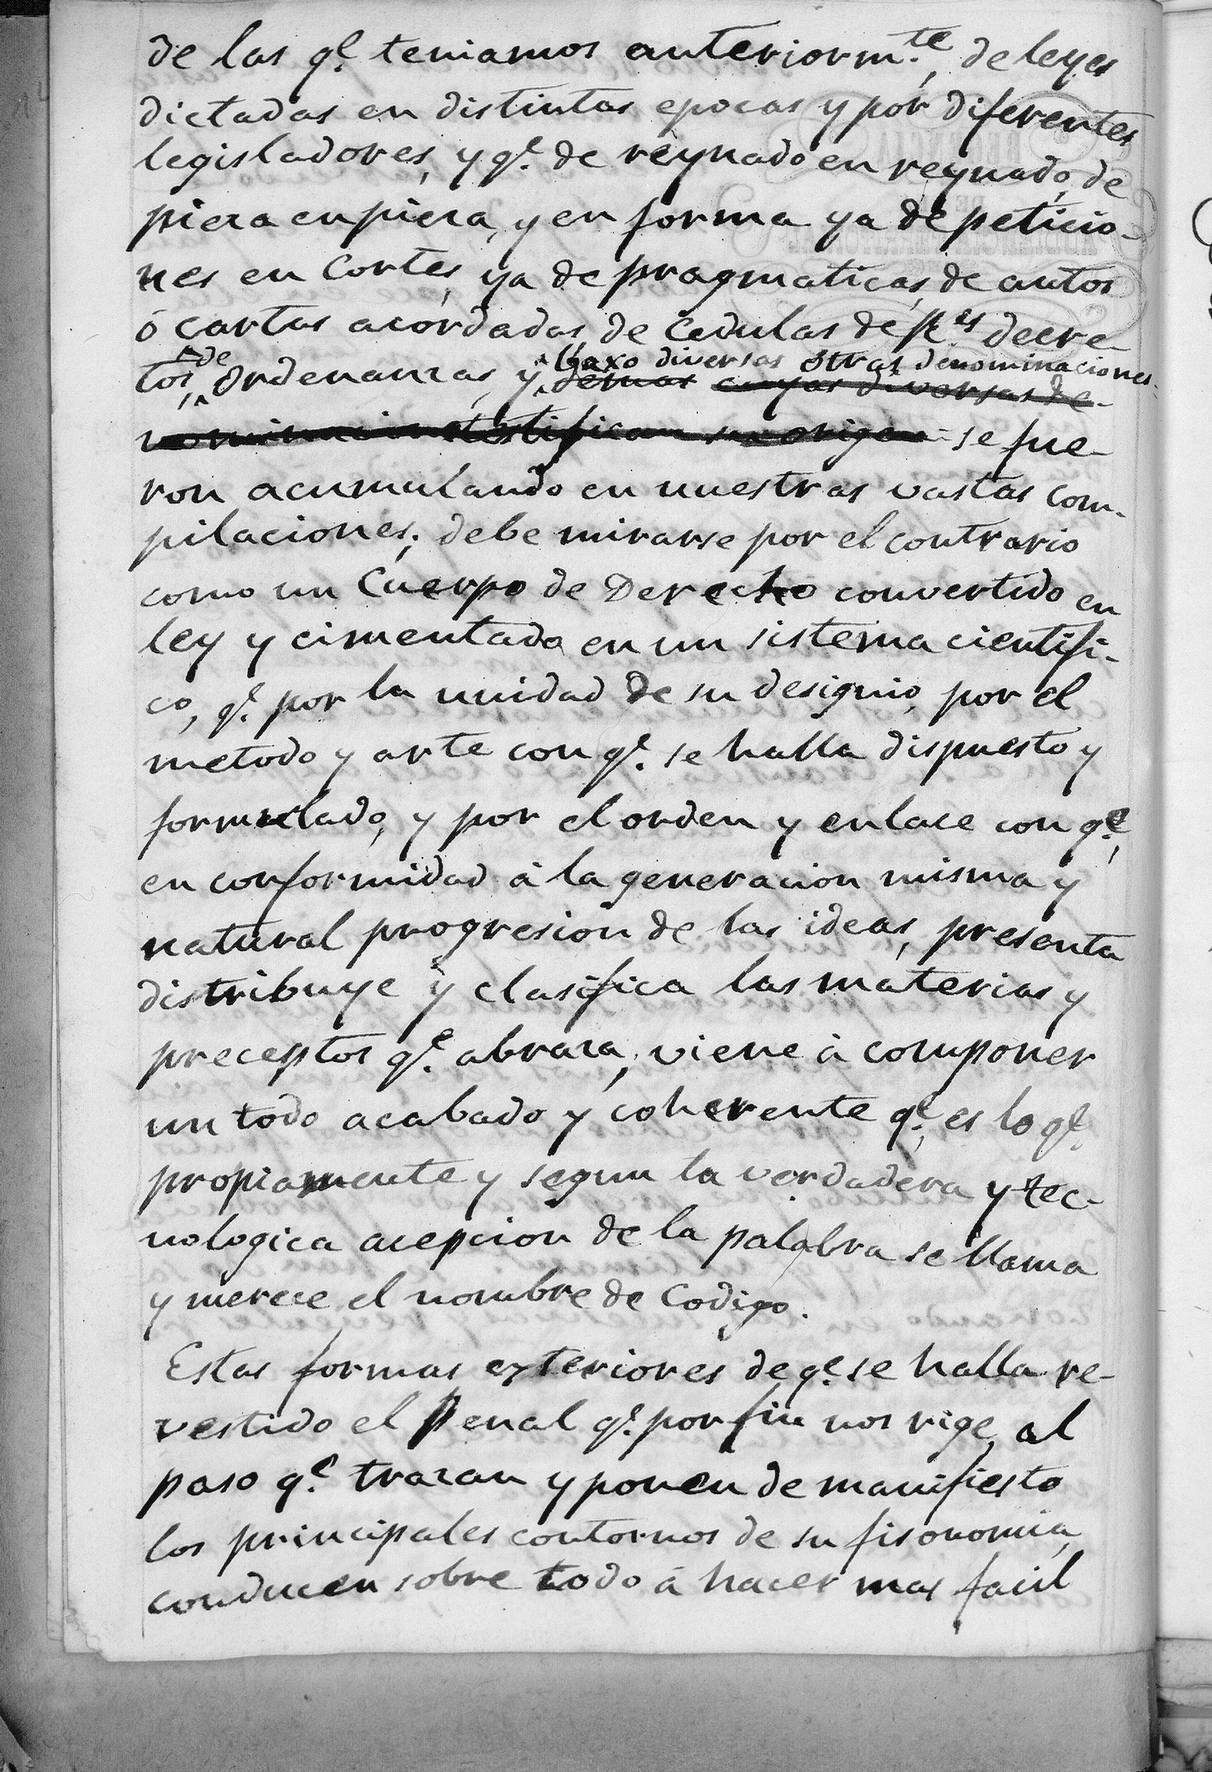 de las q.e teniamos anteriorm.te, de leyes
dictadas en distintas epocas y por diferentes
legisladores, y q.e de reynado en reynado, de
pieza en pieza, y en forma ya de peticio-
nes en Cortes, ya de pragmaticas, de autos
ó cartas acordadas, de Cedulas de R.es decre-
tos, de ordenanzas, y baxo diversas otras denominaciones
demas cuyas diversas de-
nominacion testifican su origen se fue-
ron acumulando en nuestras vastas com-
pilaciones; debe mirarse por el contrario
como un Cuerpo de Derecho convertido en
ley y cimentado en un sistema cientifi-
co, q.e por la unidad de su designio, por el
metodo y arte con q.e se halla dispuesto y
formulado, y por el orden y enlace con q.e,
en conformidad á la generacion misma y
natural progresion de las ideas, presenta
distribuye y clasifica las materias y
preceptos q.e abraza, viene à componer
un todo acabado y coherente q.e, es lo q.e
propiamente y segun la verdadera y tec-
nologica acepcion de la palabra se llama
y merece el nombre de Codigo.
Estas formas exteriores de q.e se halla re-
vestido el Penal q.e por fin nos rige, al
paso q.e trazan y ponen de manifiesto
los principales contornos de su fisonomia,
conducen sobre todo á hacer mas facil